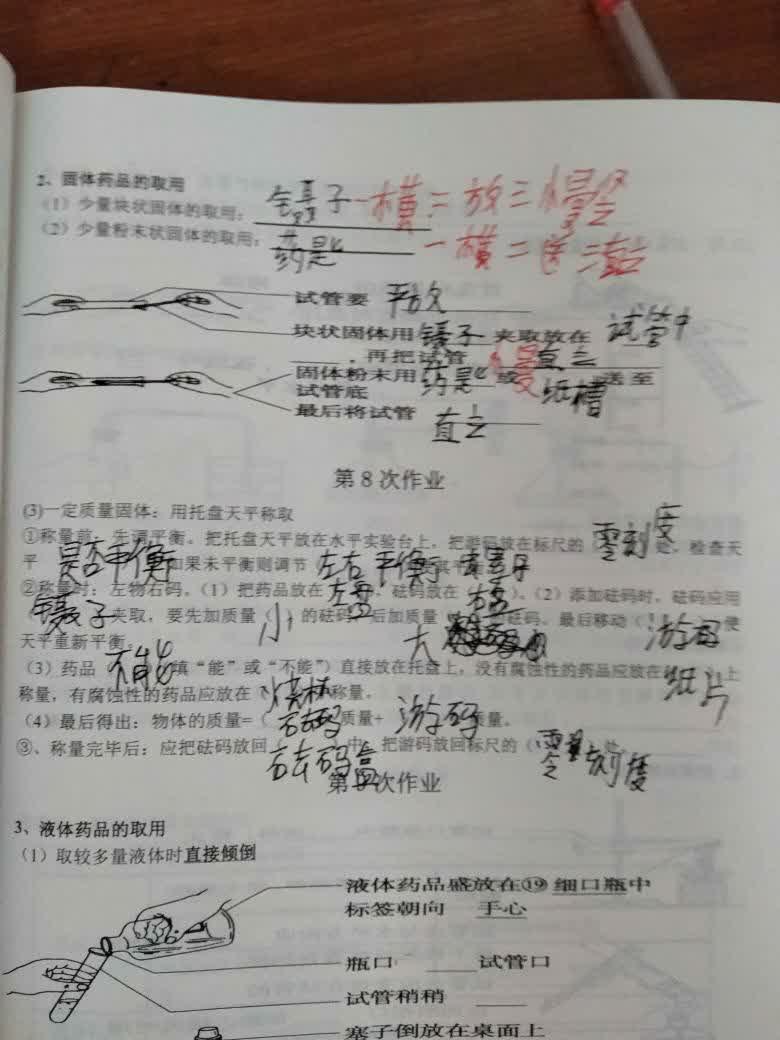 2、固体药品的取用
(1)少量块状固体的取用: 镊子 一横二放三慢竖
(2)少量粉末状固体的取用: 药匙 一横二送三直立
试管要 平放
块状固体用 镊子 夹取放在 试管中
,再把试管 慢 直立
固体粉末用 药匙 或 纸槽 送至
试管底
最后将试管 直立
第8次作业
(3)一定质量固体:用托盘天平称取
①称量前:先调平衡。把托盘天平放在水平实验台上,把游码放在标尺的 零刻度 处,检查天
平 是否平衡 如果未平衡则调节 左右平衡
②称量时:左物右码。(1)把药品放在 左盘,砝码放在( 右盘 )。(2)添加砝码时,砝码应用
( 镊子 夹取,要先加质量 小 的砝码 后加质量 大 砝码。最后移动( 游码 使
天平重新平衡。
(3)药品 不能 填“能”或“不能”)直接放在托盘上,没有腐蚀性的药品应放在 纸片 上
称量,有腐蚀性的药品应放在 烧杯 称量。
(4)最后得出:物体的质量=( 砝码 质量+ 游码 质量。
③、称量完毕后:应把砝码放回 砝码盒 中,把游码放回标尺的( 零刻度 处
第 次作业
3、液体药品的取用
(1)取较多量液体时直接倾倒
液体药品盛放在⑲ 细口瓶中
标签朝向 手心
瓶口 试管口
试管稍稍
塞子倒放在桌面上